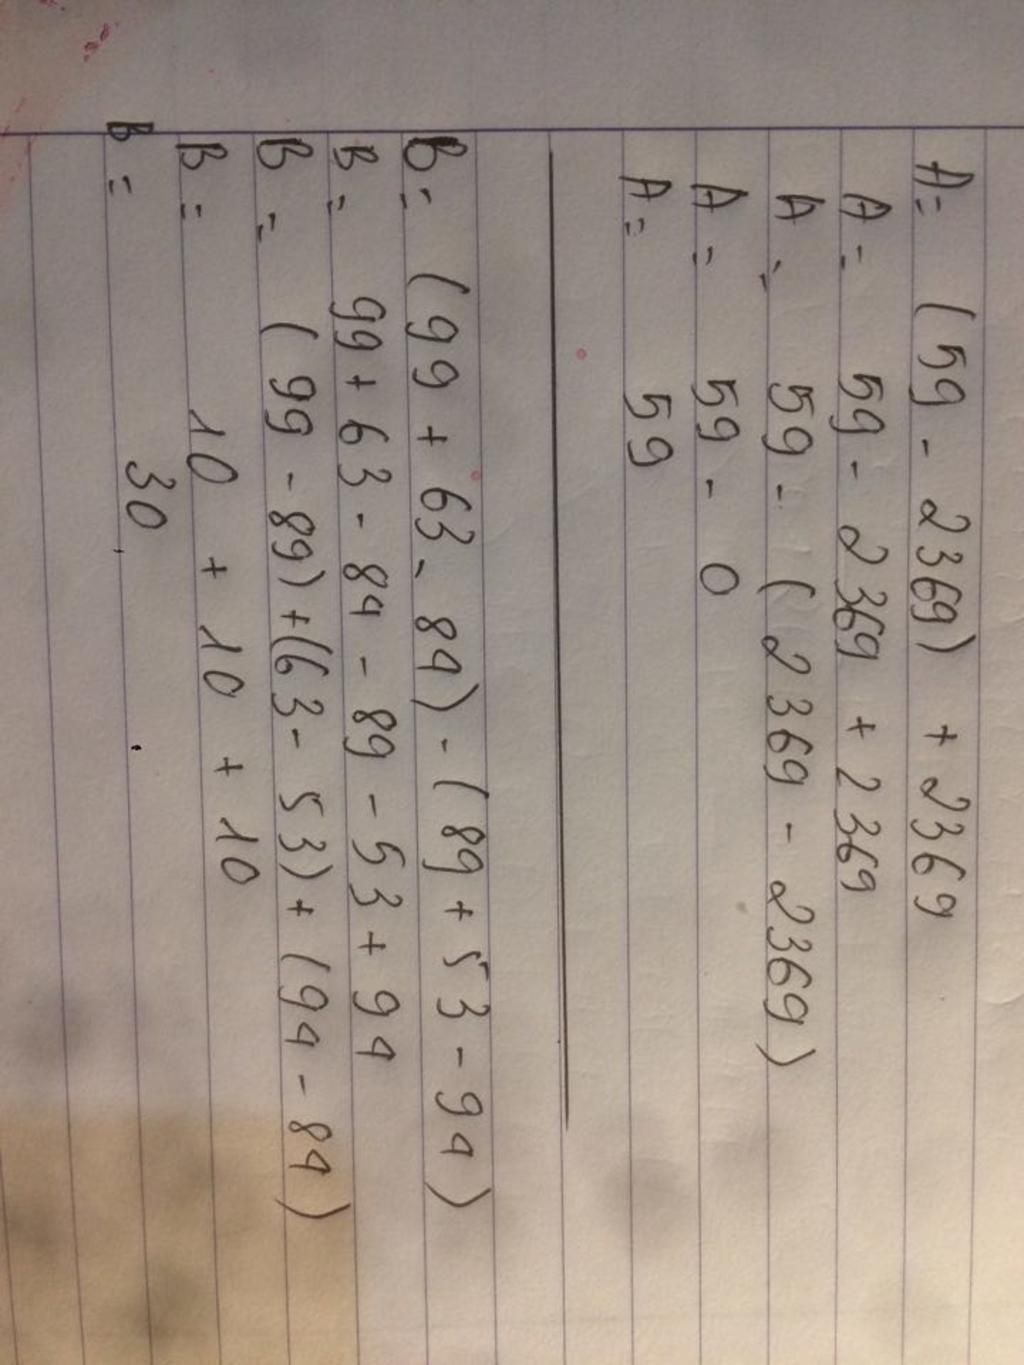 A= (59 - 2369) + 2369
A= 59 - 2369 + 2369
A= 59 - (2369 - 2369)
A= 59 - 0
A= 59
B= (99 + 63 - 84) - (89 + 53 - 94)
B= 99 + 63 - 84 - 89 - 53 + 94
B= (99 - 89) + (63 - 53) + (94 - 84)
B= 10 + 10 + 10
B= 30